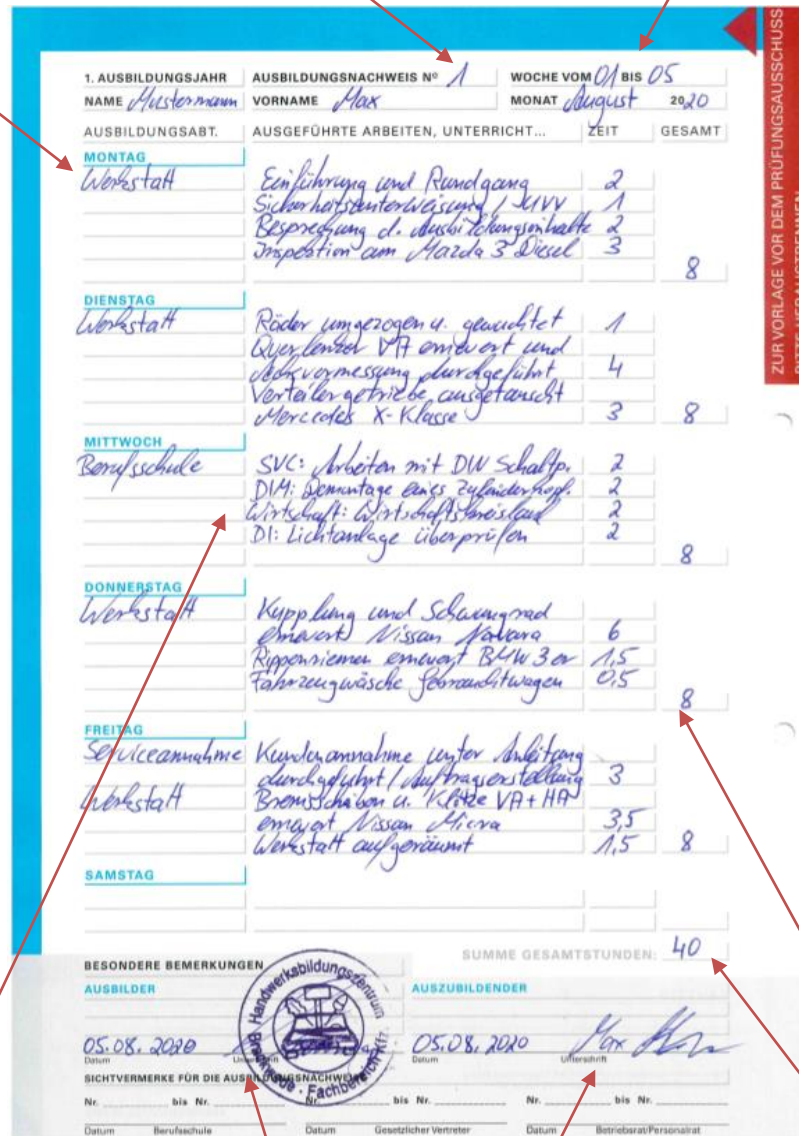 1. AUSBILDUNGSJAHR AUSBILDUNGSNACHWEIS Nº 1 WOCHE VOM 01 BIS 05
NAME Mustermann VORNAME Max MONAT August 2020
AUSBILDUNGSABT. AUSGEFÜHRTE ARBEITEN, UNTERRICHT... ZEIT GESAMT
MONTAG
Werkstatt Einführung und Rundgang 2
Sicherheitsunterweisung / UVV 1
Besprechung d. Ausbildungsinhalte 2
Inspektion am Mazda 3 Diesel 3
8
DIENSTAG
Werkstatt Räder umgezogen u. gewuchtet 1
Querlenker VA erneuert und
Achsvermessung durchgeführt 4
Verteilergetriebe ausgetauscht
Mercedes X-Klasse 3 8
MITTWOCH
Berufsschule SVC: Arbeiten mit DIN Schaltp. 2
DIM: Demontage eines Zylinderkopf. 2
Wirtschaft: Wirtschaftskreislauf 2
DI: Lichtanlage überprüfen 2
8
DONNERSTAG
Werkstatt Kupplung und Schwungrad
erneuert Nissan Navara 6
Rippenriemen erneuert BMW 3er 1,5
Fahrzeugwäsche Gebrauchtwagen 0,5
8
FREITAG
Serviceannahme Kundenannahme unter Anleitung
durchgeführt / Auftragserstellung 3
Werkstatt Bremsscheiben u. Klötze VA + HA
erneuert Nissan Micra 3,5
Werkstatt aufgeräumt 1,5 8
SAMSTAG
SUMME GESAMTSTUNDEN: 40
BESONDERE BEMERKUNGEN
AUSBILDER AUSZUBILDENDER
Handwerksbildungszentrum Brackwede - Fachbereich Kfz.
05.08.2020 05.08.2020 Max
Datum Unterschrift Datum Unterschrift
SICHTVERMERKE FÜR DIE AUSBILDUNGSNACHWEISE
Nr. bis Nr. Nr. bis Nr. Nr. bis Nr.
Datum Berufsschule Datum Gesetzlicher Vertreter Datum Betriebsrat/Personalrat
ZUR VORLAGE VOR DEM PRÜFUNGSAUSSCHUSS
BITTE HERAUSTRENNEN